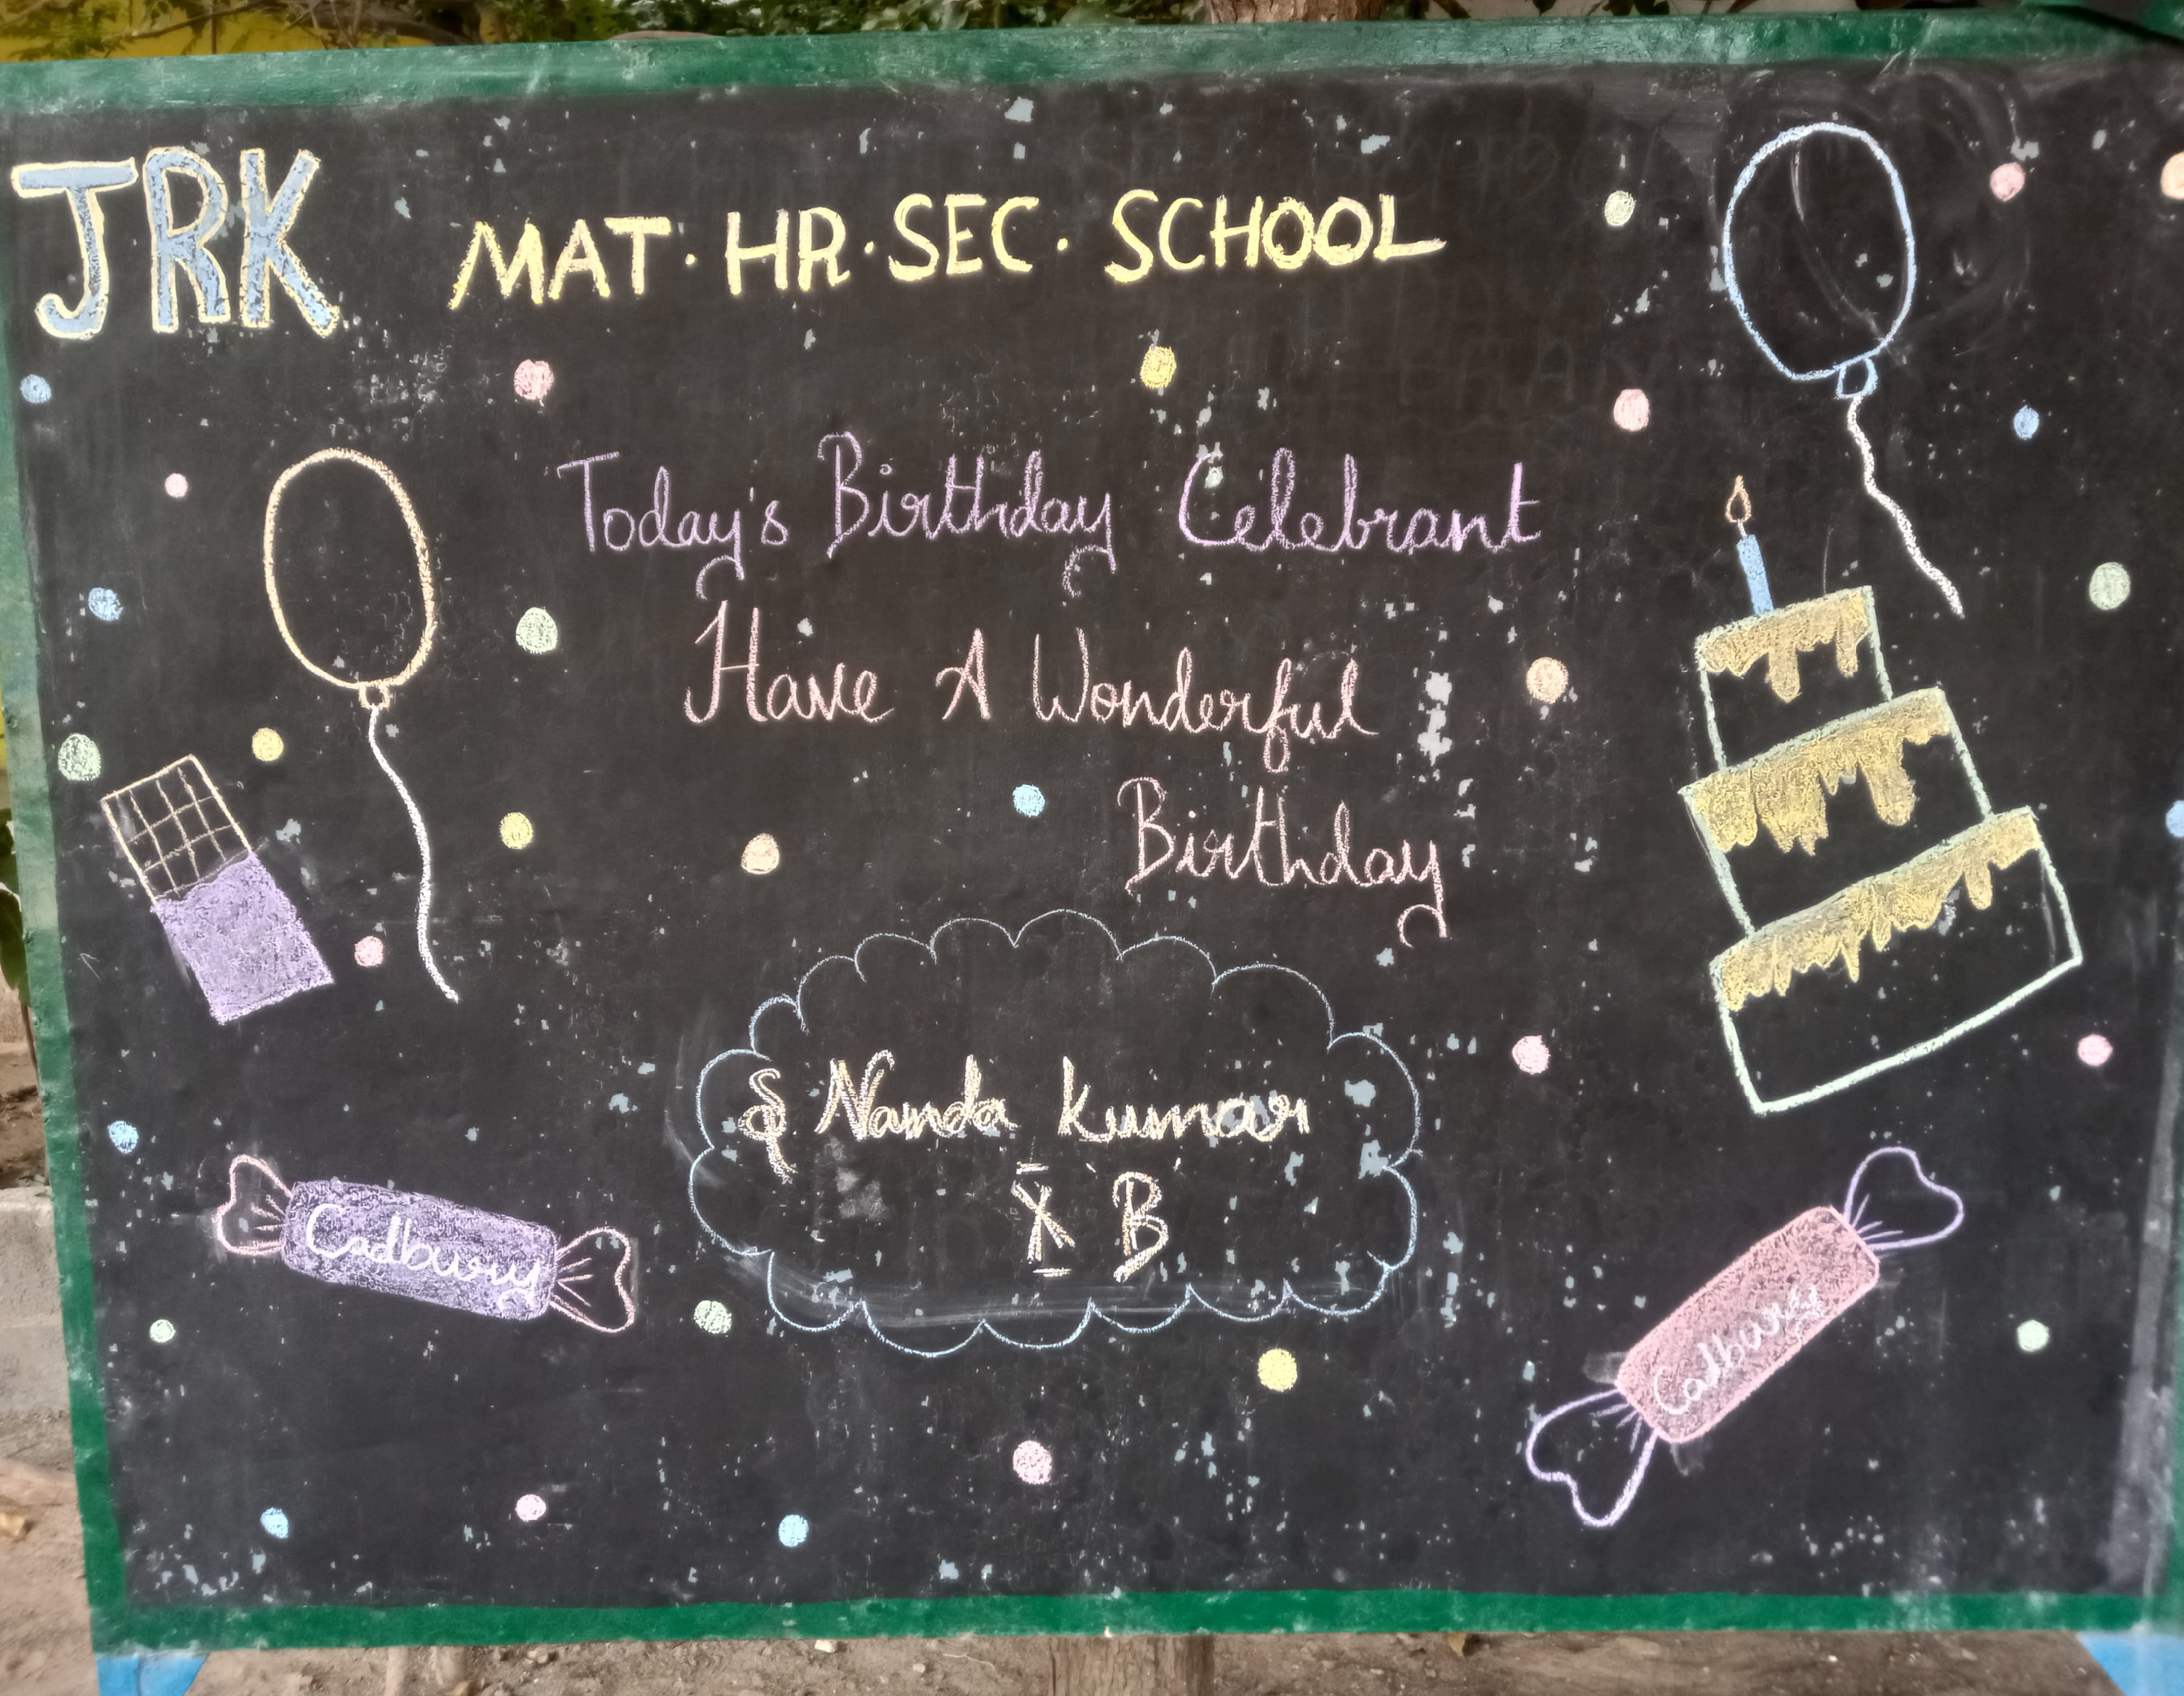 JRK MAT. HR. SEC. SCHOOL
Today's Birthday Celebrant
Have A Wonderful
Birthday
S Nanda Kumar
X B
Cadbury
Cadbury